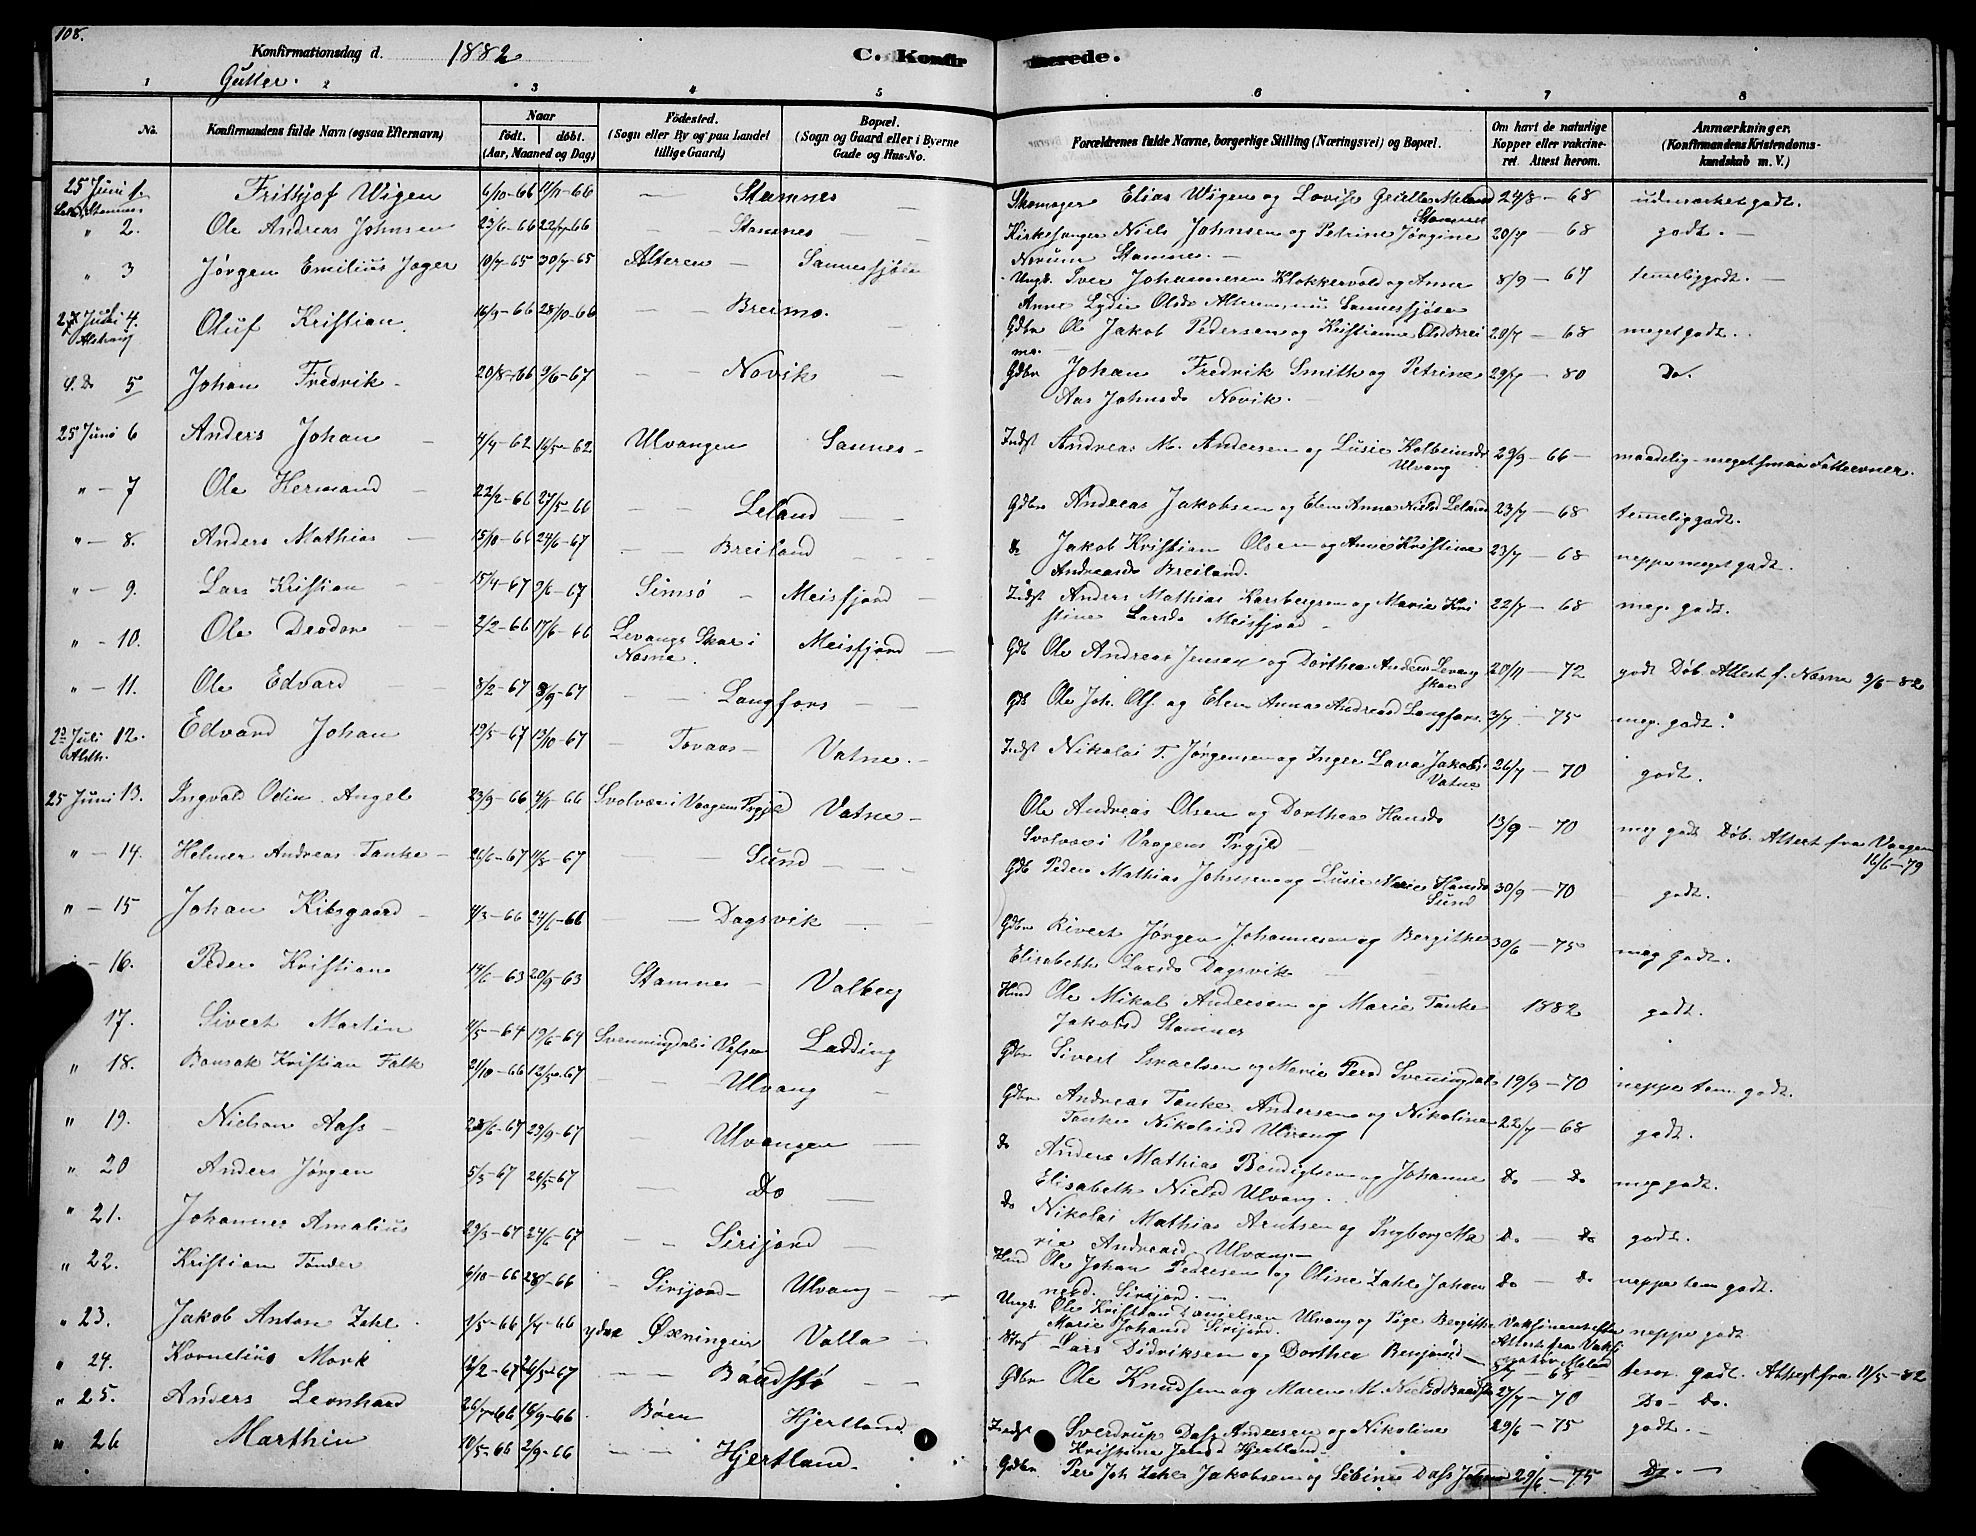 108.
Konfirmationsdag d. 1882
C. Konfir
merede.
Gutter.
1 2 3 4 5 6 7 8
No.
Konfirmandens fulde Navn (ogsaa Efternavn)
Naar
født. døbt.
(Aar, Maaned og Dag)
Fødested.
(Sogn eller By og paa Landet tillige Gaard)
Bopæl.
(Sogn og Gaard eller i Byerne Gade og Hus-No.
Forældrenes fulde Navne, borgerlige Stilling (Næringsvei) og Bopæl.
Om havt de naturlige Kopper eller vakcineret. Attest herom.
Anmærkninger.
(Konfirmandens Kristendomskundskab m. V.)
25 Juni 1. Fritkjof Wigen 6/10-66 Stamnes Skomager Elias Wigen og Lovise 24/8 - 68 udmærket godt.
Stamnes
" 2. Ole Andreas Johnsen 23/6-66 22/7-66 Stamnes Kirkesanger Niels Johnsen og Petrine Jørgine 20/7 - 68 godt.
Stamnes.
" 3 Jørgen Emilius Jager 10/7-65 30/7-65 Alteren Sannesfjøl Ungk. Iver Johannesen Klokkervold og Anne 8/9 - 67 temelig godt.
Anne Lydie Olsd. Alteren, nu Sannesfjøsen
Juli 4. Oluf Kristian 16/9-66 28/10-66 Breimo. Gdbr Ole Jakob Pedersen og Kristianne Olsd Brei 20/7 - 68 meget godt.
mo.
5 Johan Fredrik 20/8-66 9/6-67 Novik Gdbr Johan Fredrik Smith og Petrine 29/7 - 80 Do.
Aas Johnsd. Novik.
25 Juni 6 Anders Johan 4/4-62 16/5-62 Ulvangen Sannes Indst Andreas M. Andersen og Lusie Kolbeinsd 29/9 - 66 maadelig - meget smaa Fatteevner.
Ulvang
" - 7 Ole Hermand 22/2-66 27/5-66 Leland Gdbr Andreas Jakobsen og Elen Anna Nielsd Leland 23/7 - 68 temelig godt.
" - 8. Anders Mathias 15/10-66 24/6-67 Breiland do Jakob Kristian Olsen og Anne Kristine 23/7 - 68 neppe meget godt.
Andreasd. Breiland.
" - 9. Lars Kristian 15/4-67 9/6-67 Simsø Meisfjord Indst Anders Mathias Karsbergsen og Marie Kri 22/7 - 68 meg. godt.
stine Larsd. Meisfjord
" - 10. Ole Deodor 2/2-66 17/6-66 Levangs Skar i Nesne. Meisfjord Gdb Ole Andreas Jensen og Dorthea Andersd Levang 20/11 - 72 godt Døb. Attest f. Nesne 9/6-82
skar
" - 11. Ole Edvard 8/2-67 8/9-67 Langfors Gdb Ole Joh. Ols. og Elen Anna Andreasd Langfors. 3/7 - 75 meg. godt.
2den Juli 12. Edvard Johan 19/5-67 13/10-67 Tovaas Vatne. Indst Nikolai T. Jørgensen og Inger Lava Jakobsd 26/7 - 70 godt.
Alsth. Vatne
25 Juni 13. Ingvald Odin Angel 23/9-66 4/11-66 Svolvær i Vaagens Prgjld Vatne Ole Andreas Olsen og Dorthea Hansd 13/9 - 70 meg godt Døb. Attest fra Vaagen
Svolvær i Vaagens Prgjld 16/6-79
" - 14. Helmer Andreas Tanke 26/6-67 11/8-67 Sund Gdb Peder Mathias Johnsen og Lusie Marie Hansd 30/9 - 70 godt.
Sund
" - 15 Johan Kibsgaard 4/3-66 24/6-66 Dagsvik Gdbr Sivert Jørgen Johannesen og Bergithe 30/6 - 75 meg godt.
Elisabeth Larsd. Dagsvik
- 16. Peder Kristian 14/6-63 20/9-63 Stamnes Valberg Hmd Ole Mikal Andersen og Marie Tanke 1882 godt.
Jakobsd Stamnes
17. Sivert Martin 11/5-64 19/6-64 Svenningdal i Vefsn Ladding Gdbr Sivert Israelsen og Marie Persd Svenningdal 19/9 - 70 neppe tem. godt.
" 18. Bonsak Kristian Falk 21/10-66 12/5-67 Ulvang Gdbr Andreas Tanke Andersen og Nikoline 22/7 - 68 godt.
Tanke Nikolaisd Ulvang
" 19. Nielson Aass 23/6-67 29/9-67 Ulvangen do Anders Mathias Bendigtsen og Johanne Do - Do meg godt.
Elisabeth Nielsd Ulvang.
" 20 Anders Jørgen 5/3-67 24/5-67 Do do Nikolai Mathias Arntsen og Ingborg Ma Do - Do godt.
ria Andreasd Ulvang
" 21. Johannes Amalius 29/3-67 24/6-67 Sirijord Hmd Ole Johan Pedersen og Oline Zahl Johan Do - Do neppe tem godt.
nesd. Sirijord.
" 22. Kristian Tønder 6/10-66 Sirijord Ulvang Ungk. Ole Kristian Danielsen Ulvang og Pige Bergitte neppe godt.
Marie Johansd Sirijord.
" 23. Jakob Anton Zahl 1/5-66 ydre Øxningen Valla Lars Didriksen og Dorthea Benjamsd 68 tem. godt. Attest fra 11/5-82
" 24. Kornelius Mork 12/2-67 26/5-67 Baadstø Gdbr Ole Knudsen og Maren M. Nielsd Baadstø 27/7 - 70 Do - Do.
" 25. Anders Leonhard 26/7-66 16/9-66 Bøen Hjertland Indst Sverdrup Dass Andersen og Nikoline 29/6 - 75 godt.
Kristine Jensd Hjertland
" 26 Marthin 10/5-66 2/9-66 Hjertland. Gdbr. Per Joh. Zahl Jakobsen og Sebine Dass 29/6 - 75 Do.